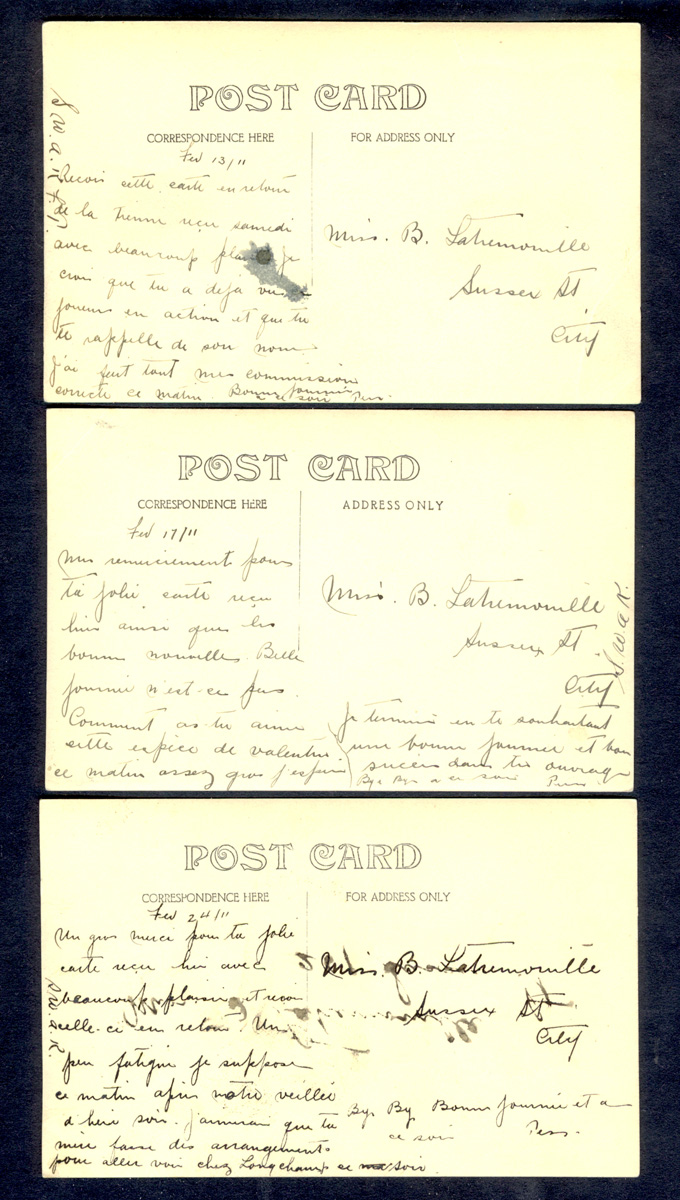 POST CARD
CORRESPONDENCE HERE
FOR ADDRESS ONLY
Fev 13/11
S.W.A.K.
Recois cette carte en retour
de la tienne reçu samedi
avec beaucoup je
crois que tu a deja
joueurs en action et que tu
te rappelle de son nom.
J'ai fait tout mes commission
correcte ce matin. Bonne journée
a ce soir
Miss. B. Latremouille
Sussex St.
City
POST CARD
CORRESPONDENCE HERE
ADDRESS ONLY
Fev 17/11
Mes remerciements pour
ta jolie carte reçu
hier ainsi que les
bonnes nouvelles. Belle
journée n'est-ce pas.
Comment as-tu aimé
cette espèce de valentin
ce matin assez gros j'espère
Miss. B. Latremouille
Sussex St.
City
S.W.A.K.
Je termine en te souhaitant
une bonne journée et bon
succès dans tes ouvrage
Bye Bye a ce soir
POST CARD
CORRESPONDENCE HERE
FOR ADDRESS ONLY
Fev 24/11
Un gros merci pour ta jolie
carte reçu hier avec
beaucoup plaisir et recois
celle-ci en retour. Un
peu fatigué je suppose
ce matin après notre veillée
d'hier soir. J'aimerais que ta
mère fasse des arrangements
pour aller voir chez Longchamps ce soir.
S.W.A.K.
Miss. B. Latremouille
Sussex St
City
Bye By Bonne journée et a
ce soir